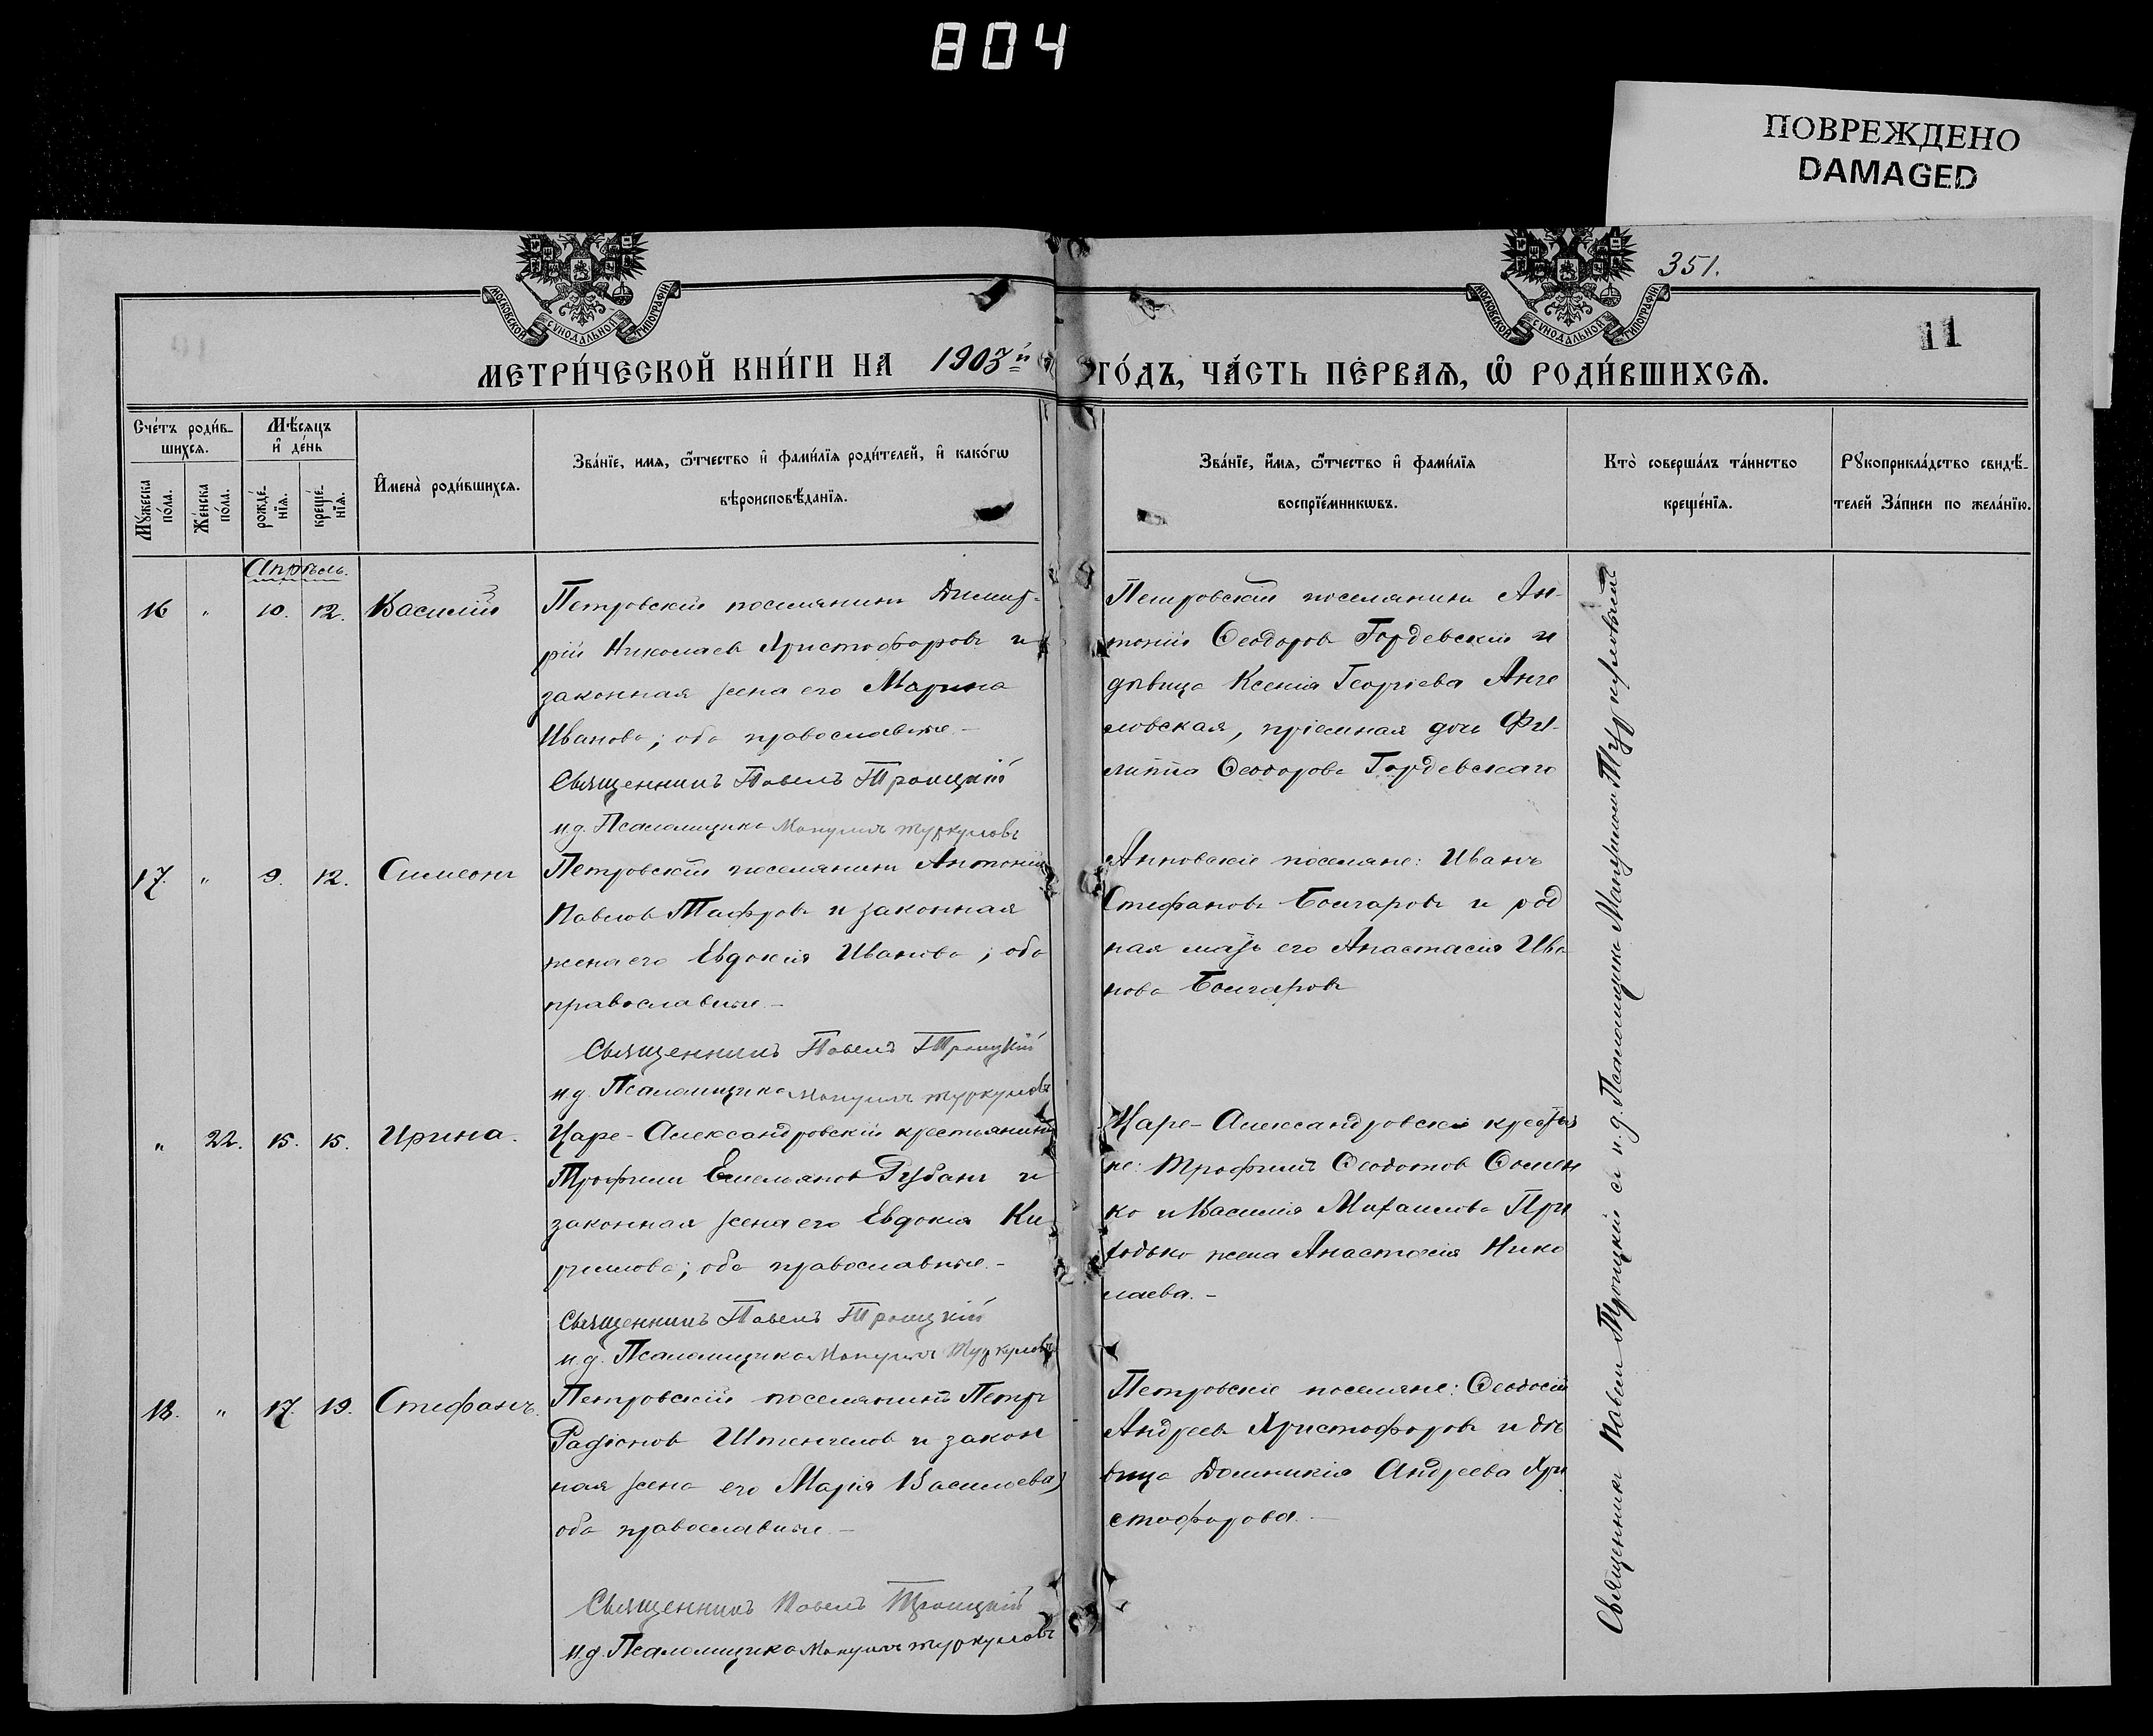 804
ПОВРЕЖДЕНО
DAMAGED
351.
11
МОСКОВСКОЙ СѴНОДАЛЬНОЙ ТИПОГРАФІИ
МОСКОВСКОЙ СѴНОДАЛЬНОЙ ТИПОГРАФІИ
МЕТРИ́ЧЕСКОЙ КНИ́ГИ НА 1903й ГО́ДЪ, ЧА́СТЬ ПЕ́РВАѦ, Ѡ҆ РОДИ́ВШИХСѦ.
Сче́тъ роди́в-
шихсѧ.
Мꙋ́жеска по́ла.
Же́нска по́ла.
Мѣ́сѧцъ
и҆ де́нь
рожде́-
нїѧ.
креще́-
нїѧ.
И҆мена̀ роди́вшихсѧ.
Зва́нїе, имѧ, ѻ҆́тчество и҆ фами́лїѧ роди́телей, и҆ како́гѡ
вѣроисповѣ́данїѧ.
Зва́нїе, и҆́мѧ, ѻ҆́тчество и҆ фами́лїѧ
воспрїе́мникѡвъ.
Кто̀ соверша́лъ та́инство
креще́нїѧ.
Рꙋкоприкла́дство свидѣ́-
телей За́писи по жела́нїю.
Апрѣль.
16 " 10. 12. Василій
Петровскій поселянинъ Димит-
рій Николаевъ Христофоровъ и
законная жена его Марина
Иванова; оба православные.-
Священникъ Павелъ Троицкій
и.д. Псаломщика Мануилъ Туркуловъ
Петровскій поселянинъ Ан-
тоній Ѳеодоровъ Гордевскій и
дѣвица Ксенія Георгіева Анге
ловская, пріемная дочь Фи-
липпа Ѳеодорова Гордевскаго
17. " 9. 12. Симеонъ
Петровскій поселянинъ Антоній
Павловъ и законная
жена его Евдокія Иванова; оба
православные.-
Священникъ Павелъ Троицкій
и.д. Псаломщика Мануилъ Туркуловъ
Анновскіе поселяне: Иванъ
Стефановъ Болгаровъ и род
ная мать его Анастасія Ива
нова Болгаровъ
" 22. 15. 15. Ирина.
Царе-Александровскій крестьянинъ
Трофимъ Емельяновъ Рубанъ и
законная жена его Евдокія Ки
риллова; оба православные.-
Священникъ Павелъ Троицкій
и.д. Псаломщика Мануилъ Туркуловъ
Царе-Александровскіе крестья
не: Трофимъ Ѳеодотовъ Ѳомен
ко и Василія Михайлова При
ходько жена Анастасія Нико
лаева.-
18. " 17. 19. Стефанъ.
Петровскій поселянинъ Петръ
Штенгеловъ и закон
ная жена его Марія Васильева;
оба православные.-
Священникъ Павелъ Троицкій
и.д. Псаломщика Мануилъ Туркуловъ
Петровскіе поселяне: Ѳеодосій
Андреевъ Христофоровъ и дѣ
вица Домникія Андреева Хри
стофорова.-
Священникъ Павелъ Троицкій съ и.д. Псаломщика Мануиломъ Туркуловымъ